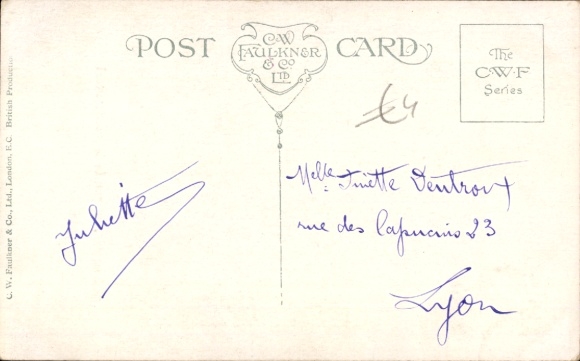 POST CARD
C.W. FAULKNER & Co. LTD
The
C.W.F
Series
€4
Juliette
Melle Finette Dentroux
rue des Capucins 23
Lyon
C. W. Faulkner & Co., Ltd., London, E.C. British Production